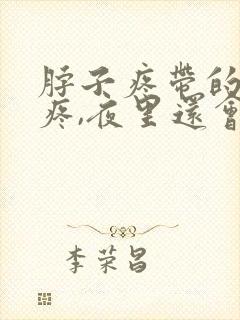 脖子疼帶的
疼,夜里還會
李荣昌